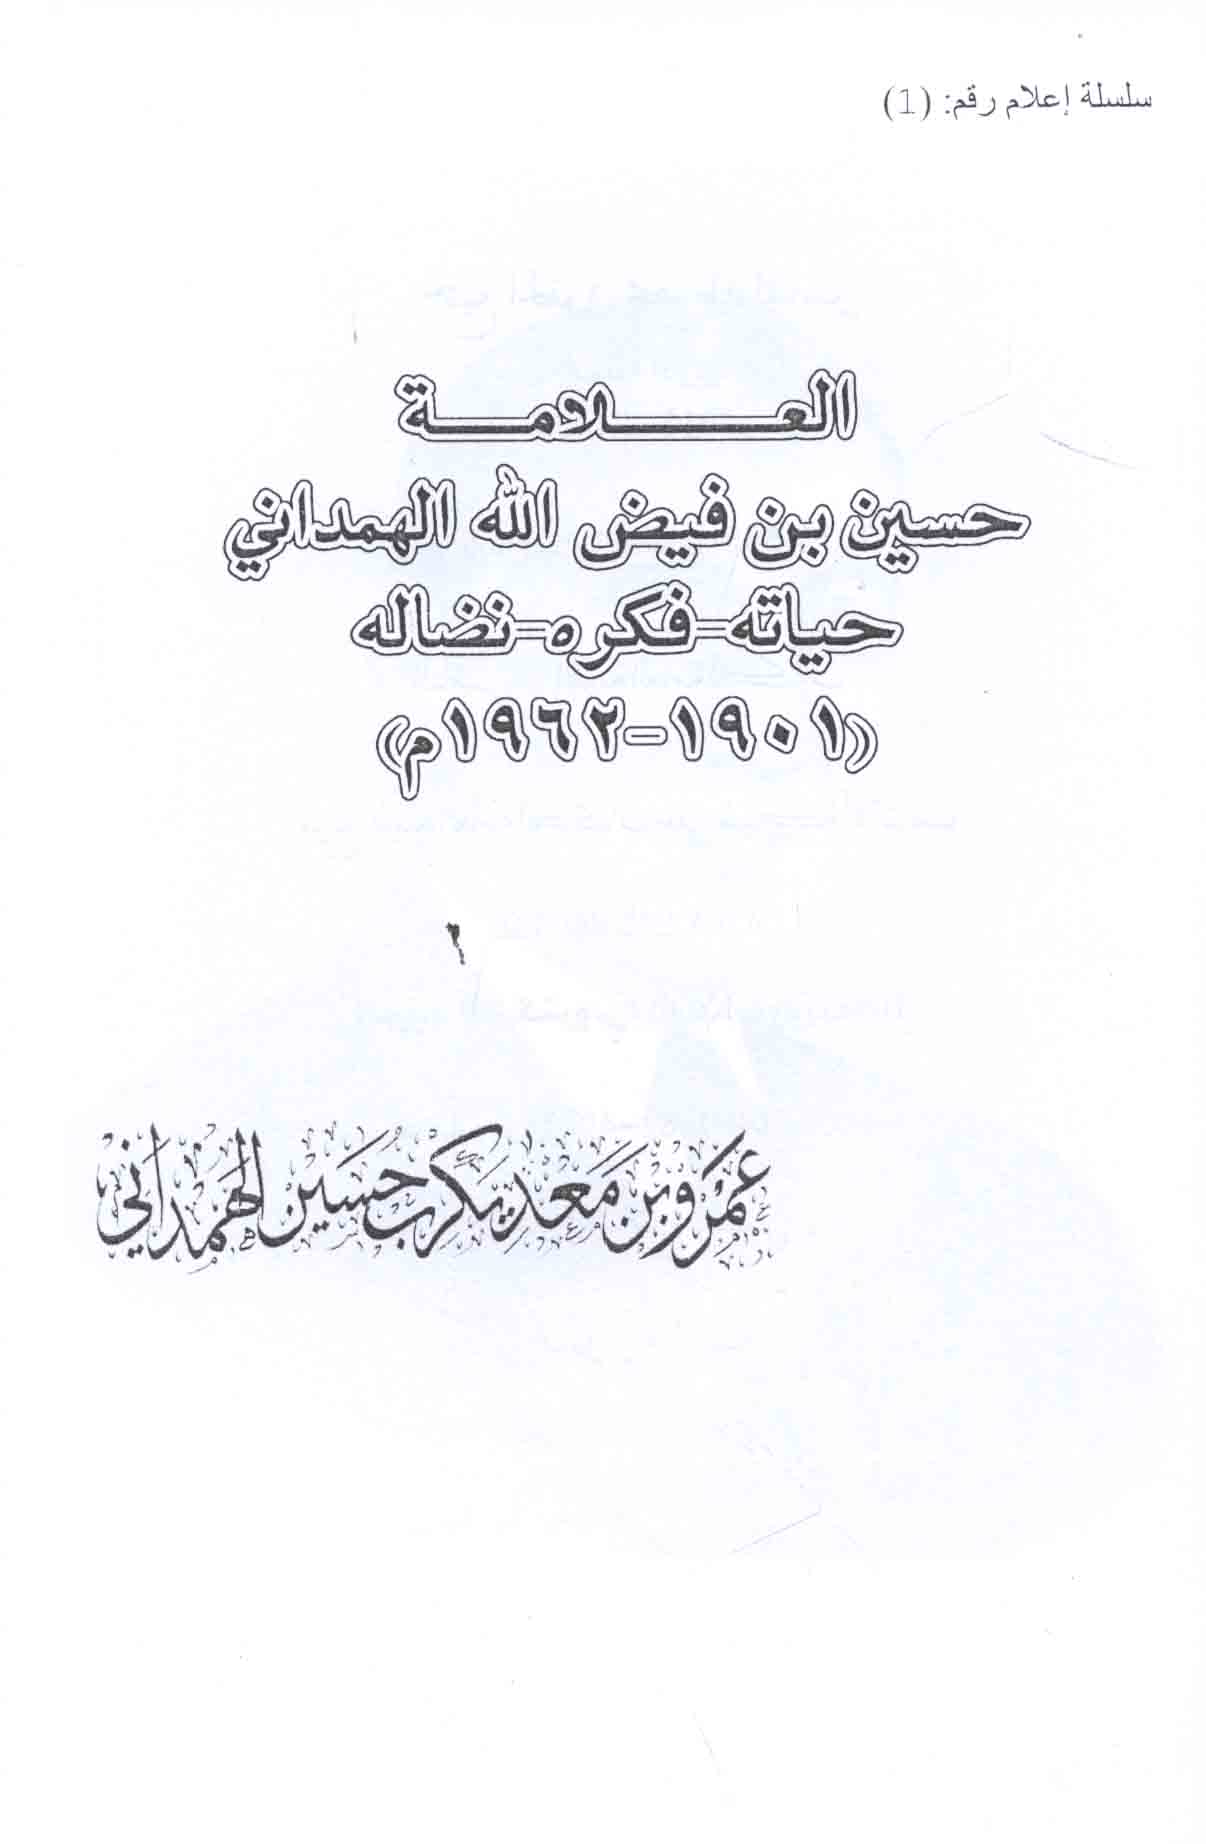 سلسلة إعلام رقم: (1)
العلامة
حسين بن فيض الله الهمداني
حياته-فكره-نضاله
(١٩٠١-١٩٦٢م)
عمرو بن معديكرب حسين الهمداني